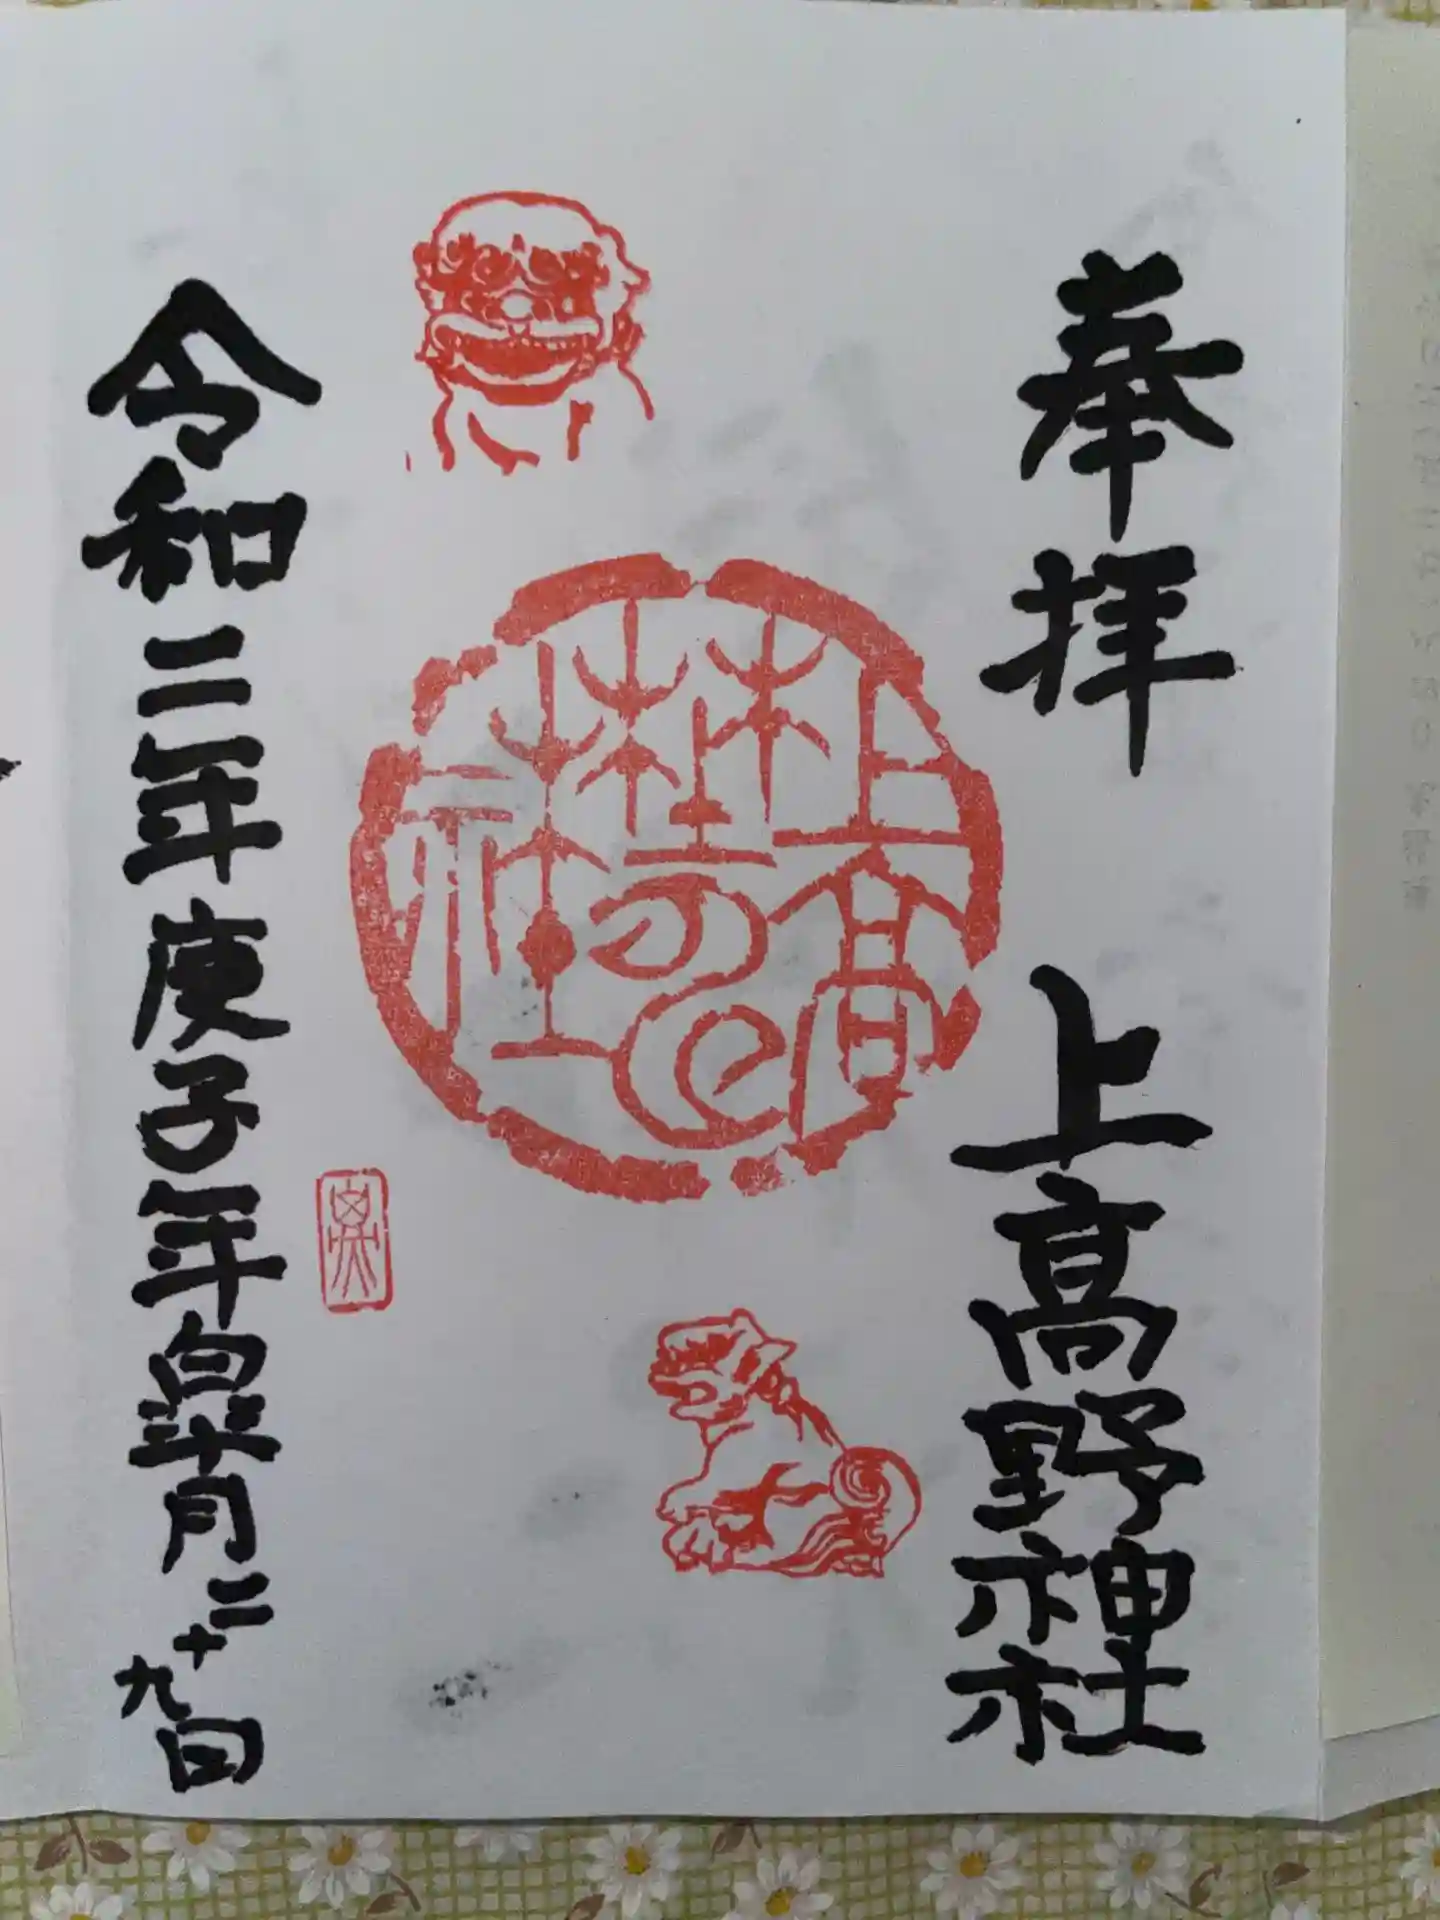 奉拝
上高野神社
令和二年庚子年皐月二十九日